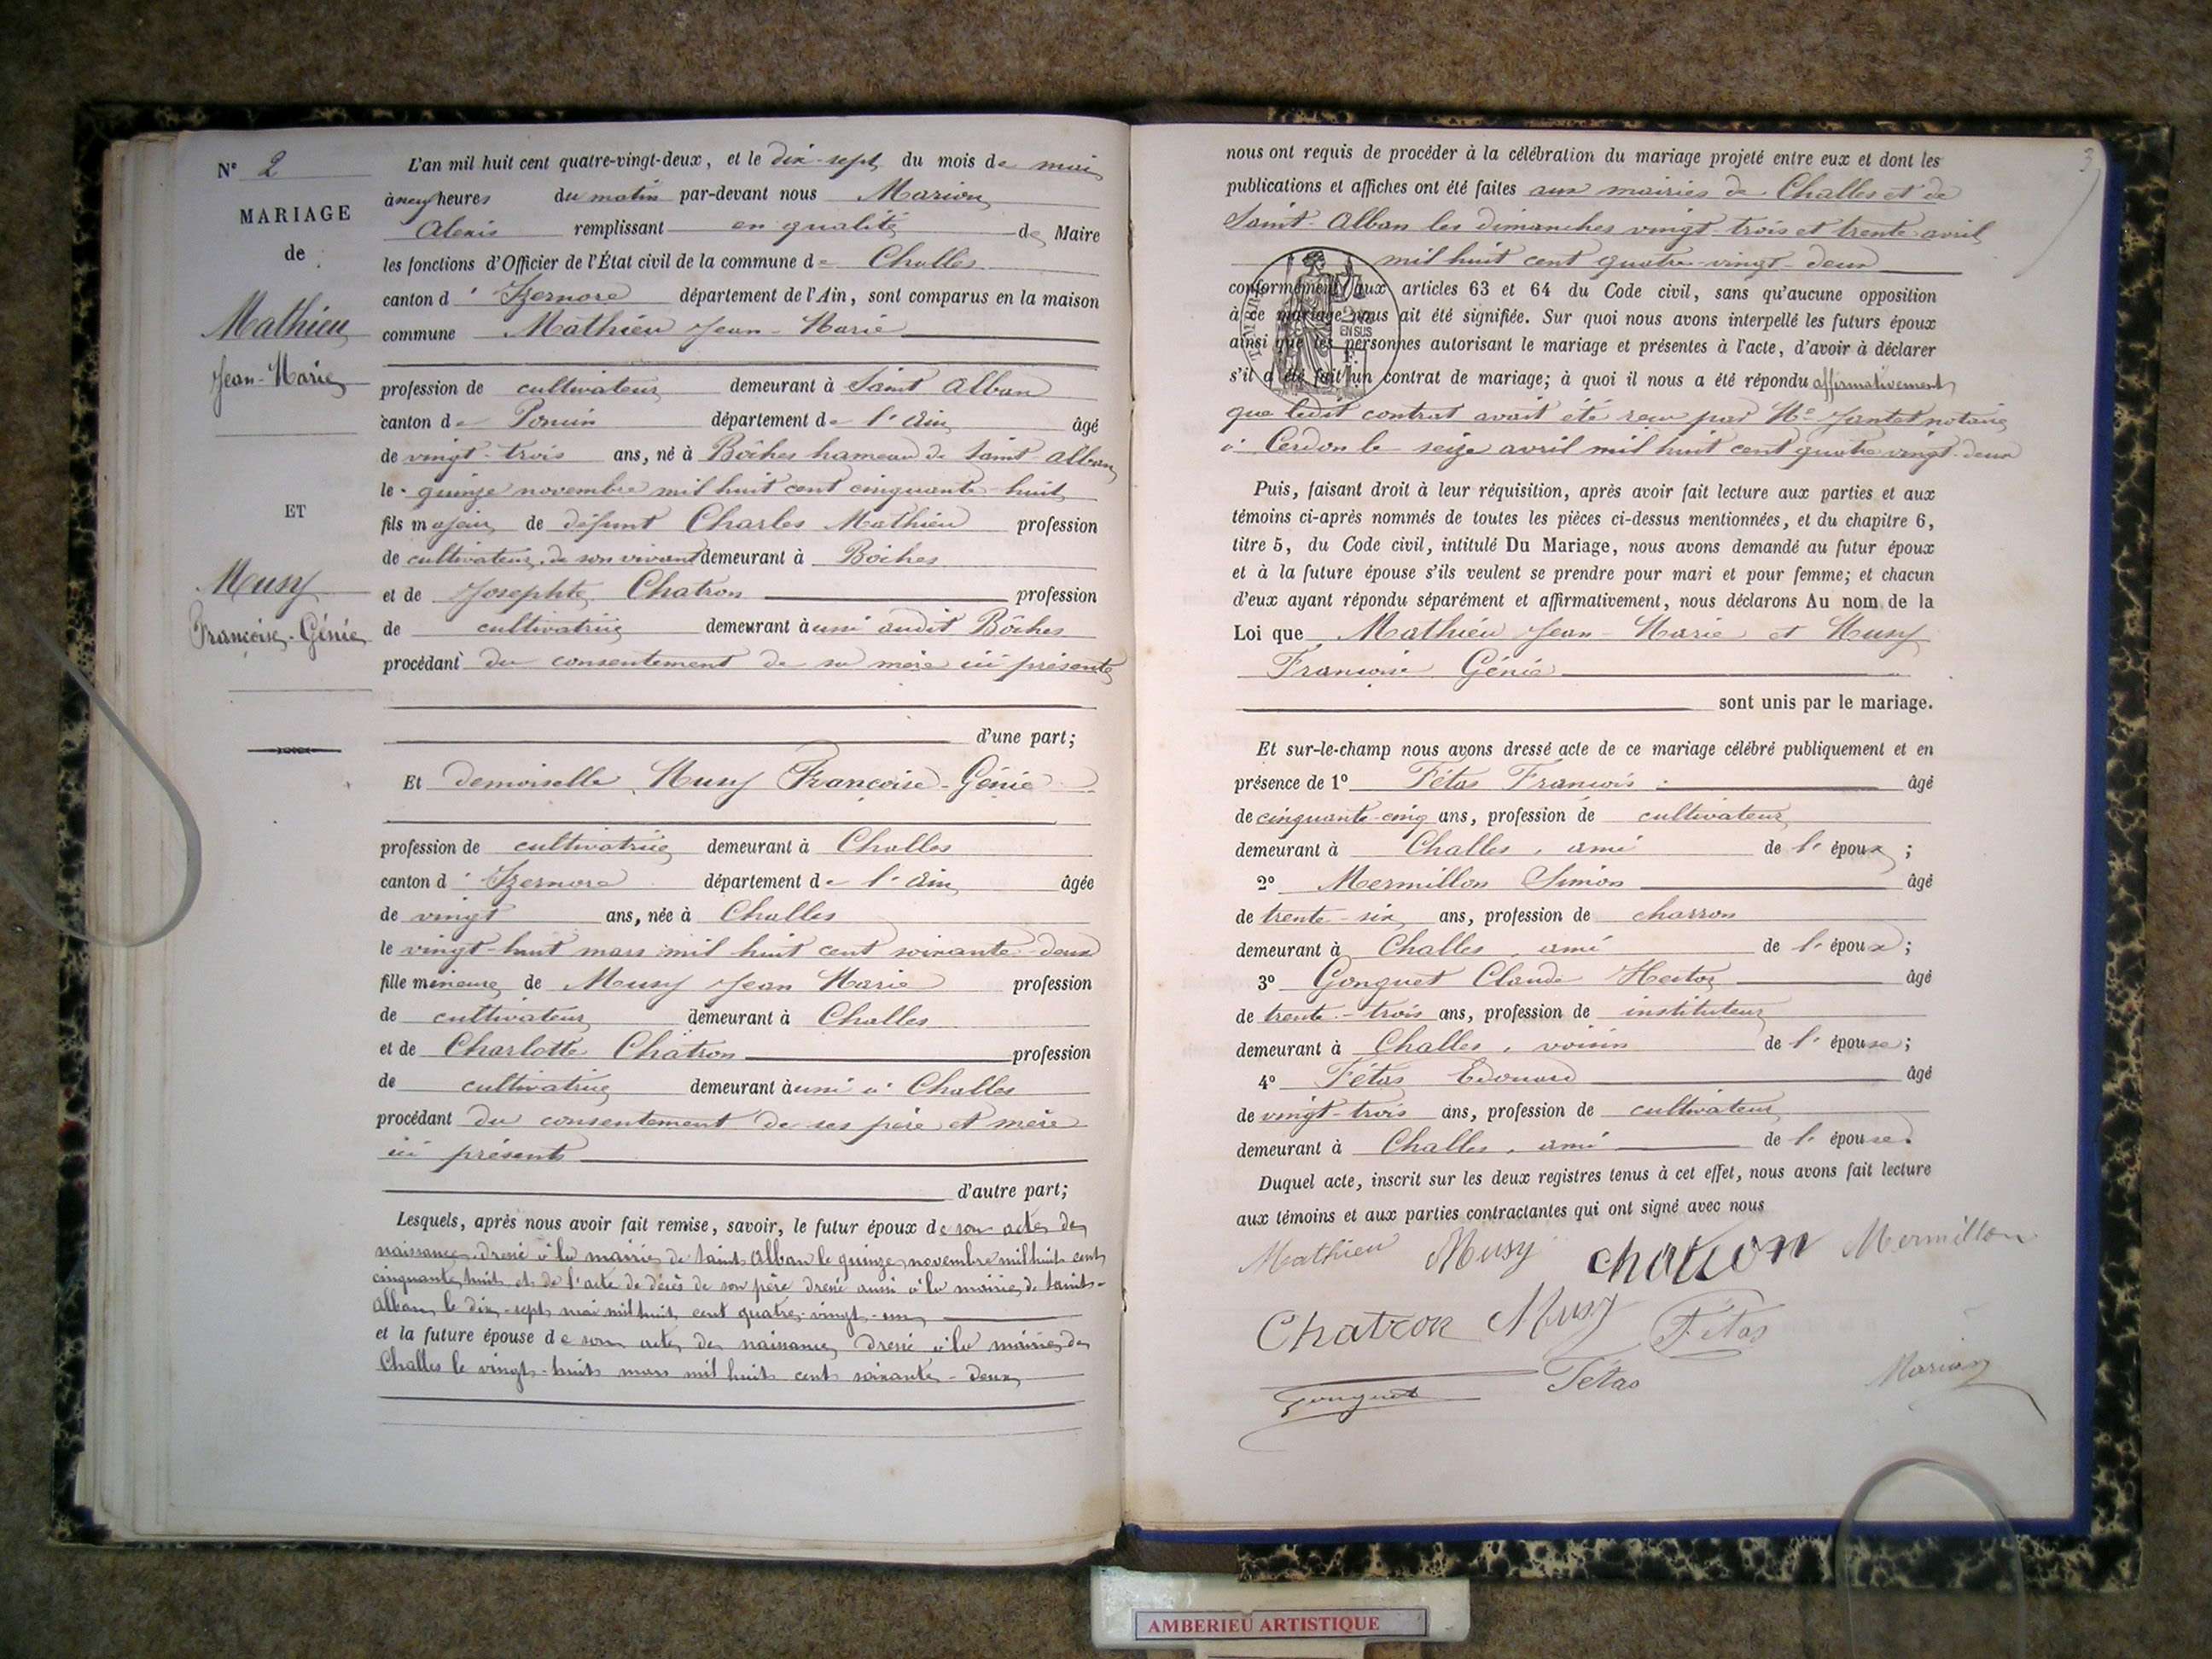 N° 2
MARIAGE
de
Mathieu
Jean-Marie
ET
Musy
Françoise-Génie
L'an mil huit cent quatre-vingt-deux, et le dix-sept du mois de mai
à neuf heures du matin par-devant nous Marion
Alexis remplissant en qualité de Maire
les fonctions d'Officier de l'État civil de la commune de Challes
canton d'Izernore département de l'Ain, sont comparus en la maison
commune Mathieu Jean-Marie
profession de cultivateur demeurant à Saint Alban
canton de Poncin département de l'Ain âgé
de vingt-trois ans, né à Bôches hameau de Saint Alban
le quinze novembre mil huit cent cinquante-huit
fils majeur de défunt Charles Mathieu profession
de cultivateur de son vivant demeurant à Boches
et de Josephte Chatron profession
de cultivatrice demeurant à uni audit Bôches
procédant du consentement de sa mère ici présente
d'une part;
Et demoiselle Musy Françoise-Génie
profession de cultivatrice demeurant à Challes
canton d'Izernore département de l'Ain âgée
de vingt ans, née à Challes
le vingt-huit mars mil huit cent soixante-deux
fille mineure de Musy Jean Marie profession
de cultivateur demeurant à Challes
et de Charlotte Chatron profession
de cultivatrice demeurant à uni à Challes
procédant du consentement de ses père et mère
ici présents
d'autre part;
Lesquels, après nous avoir fait remise, savoir, le futur époux de son acte de
naissance dressé à la mairie de Saint Alban le quinze novembre mil huit cent
cinquante huit et de l'acte de décès de son père dressé aussi à la mairie de Saint-
Alban le dix-sept mai mil huit cent quatre-vingt-un
et la future épouse de son acte de naissance dressé à la mairie de
Challes le vingt-huit mars mil huit cent soixante-deux
3
nous ont requis de procéder à la célébration du mariage projeté entre eux et dont les
publications et affiches ont été faites aux mairies de Challes et de
Saint-Alban les dimanches vingt-trois et trente avril
mil huit cent quatre-vingt-deux
conformément aux articles 63 et 64 du Code civil, sans qu'aucune opposition
à ce mariage nous ait été signifiée. Sur quoi nous avons interpellé les futurs époux
ainsi que les personnes autorisant le mariage et présentes à l'acte, d'avoir à déclarer
s'il a été fait un contrat de mariage; à quoi il nous a été répondu affirmativement
que ledit contrat avait été reçu par Me Jantet notaire
à Cerdon le seize avril mil huit cent quatre vingt-deux
EN SUS
Puis, faisant droit à leur réquisition, après avoir fait lecture aux parties et aux
témoins ci-après nommés de toutes les pièces ci-dessus mentionnées, et du chapitre 6,
titre 5, du Code civil, intitulé Du Mariage, nous avons demandé au futur époux
et à la future épouse s'ils veulent se prendre pour mari et pour femme; et chacun
d'eux ayant répondu séparément et affirmativement, nous déclarons Au nom de la
Loi que Mathieu Jean-Marie et Musy
Françoise Génie
sont unis par le mariage.
Et sur-le-champ nous avons dressé acte de ce mariage célébré publiquement et en
présence de 1° Fétas François âgé
de cinquante-cinq ans, profession de cultivateur
demeurant à Challes, ami de l'époux;
2° Mermillon Simon âgé
de trente-six ans, profession de charron
demeurant à Challes, ami de l'époux;
3° Gonguet Claude Hector âgé
de trente-trois ans, profession de instituteur
demeurant à Challes, voisin de l'épouse;
4° Fétas Edouard âgé
de vingt-trois ans, profession de cultivateur
demeurant à Challes, ami de l'épouse.
Duquel acte, inscrit sur les deux registres tenus à cet effet, nous avons fait lecture
aux témoins et aux parties contractantes qui ont signé avec nous
Mathieu Musy chatron Mermillon
Chatron Musy Fétas
Gonguet Fétas Marion
AMBERIEU ARTISTIQUE